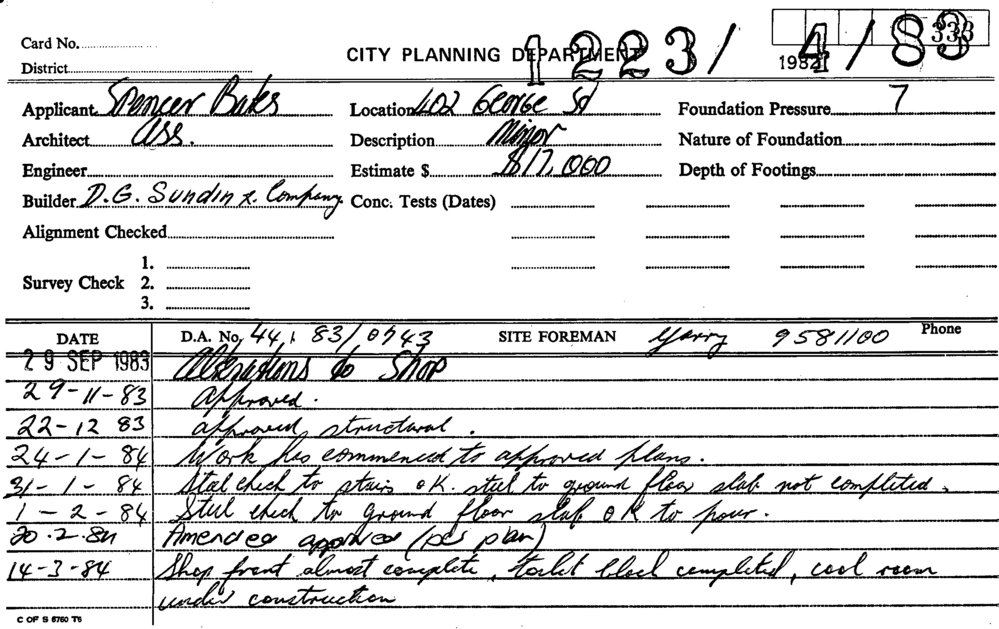 333
Card No.
CITY PLANNING DEPARTMENT 1223/4/83
1982
District
Applicant Spencer Bates Location 402 George St Foundation Pressure 7
Architect Ass. Description Minor Nature of Foundation
Engineer Estimate $ $17,000 Depth of Footings
Builder D.G. Sundin & Company. Conc. Tests (Dates)
Alignment Checked
1.
Survey Check 2.
3.
DATE D.A. No. 44, 83/0743 SITE FOREMAN Garry 9581100 Phone
29 SEP 1983 Alterations to Shop
29-11-83 Approved.
22-12 83 approved structural.
24-1-84 Work has commenced to approved plans.
31-1-84 Steel check to stairs OK. steel to ground floor slab not completed.
1-2-84 Steel check to ground floor slab OK to pour.
20.2.84 Amended approved (per plan)
14-3-84 Shop front almost complete, toilet block completed, cool room
under construction
C OF S 6760 T6